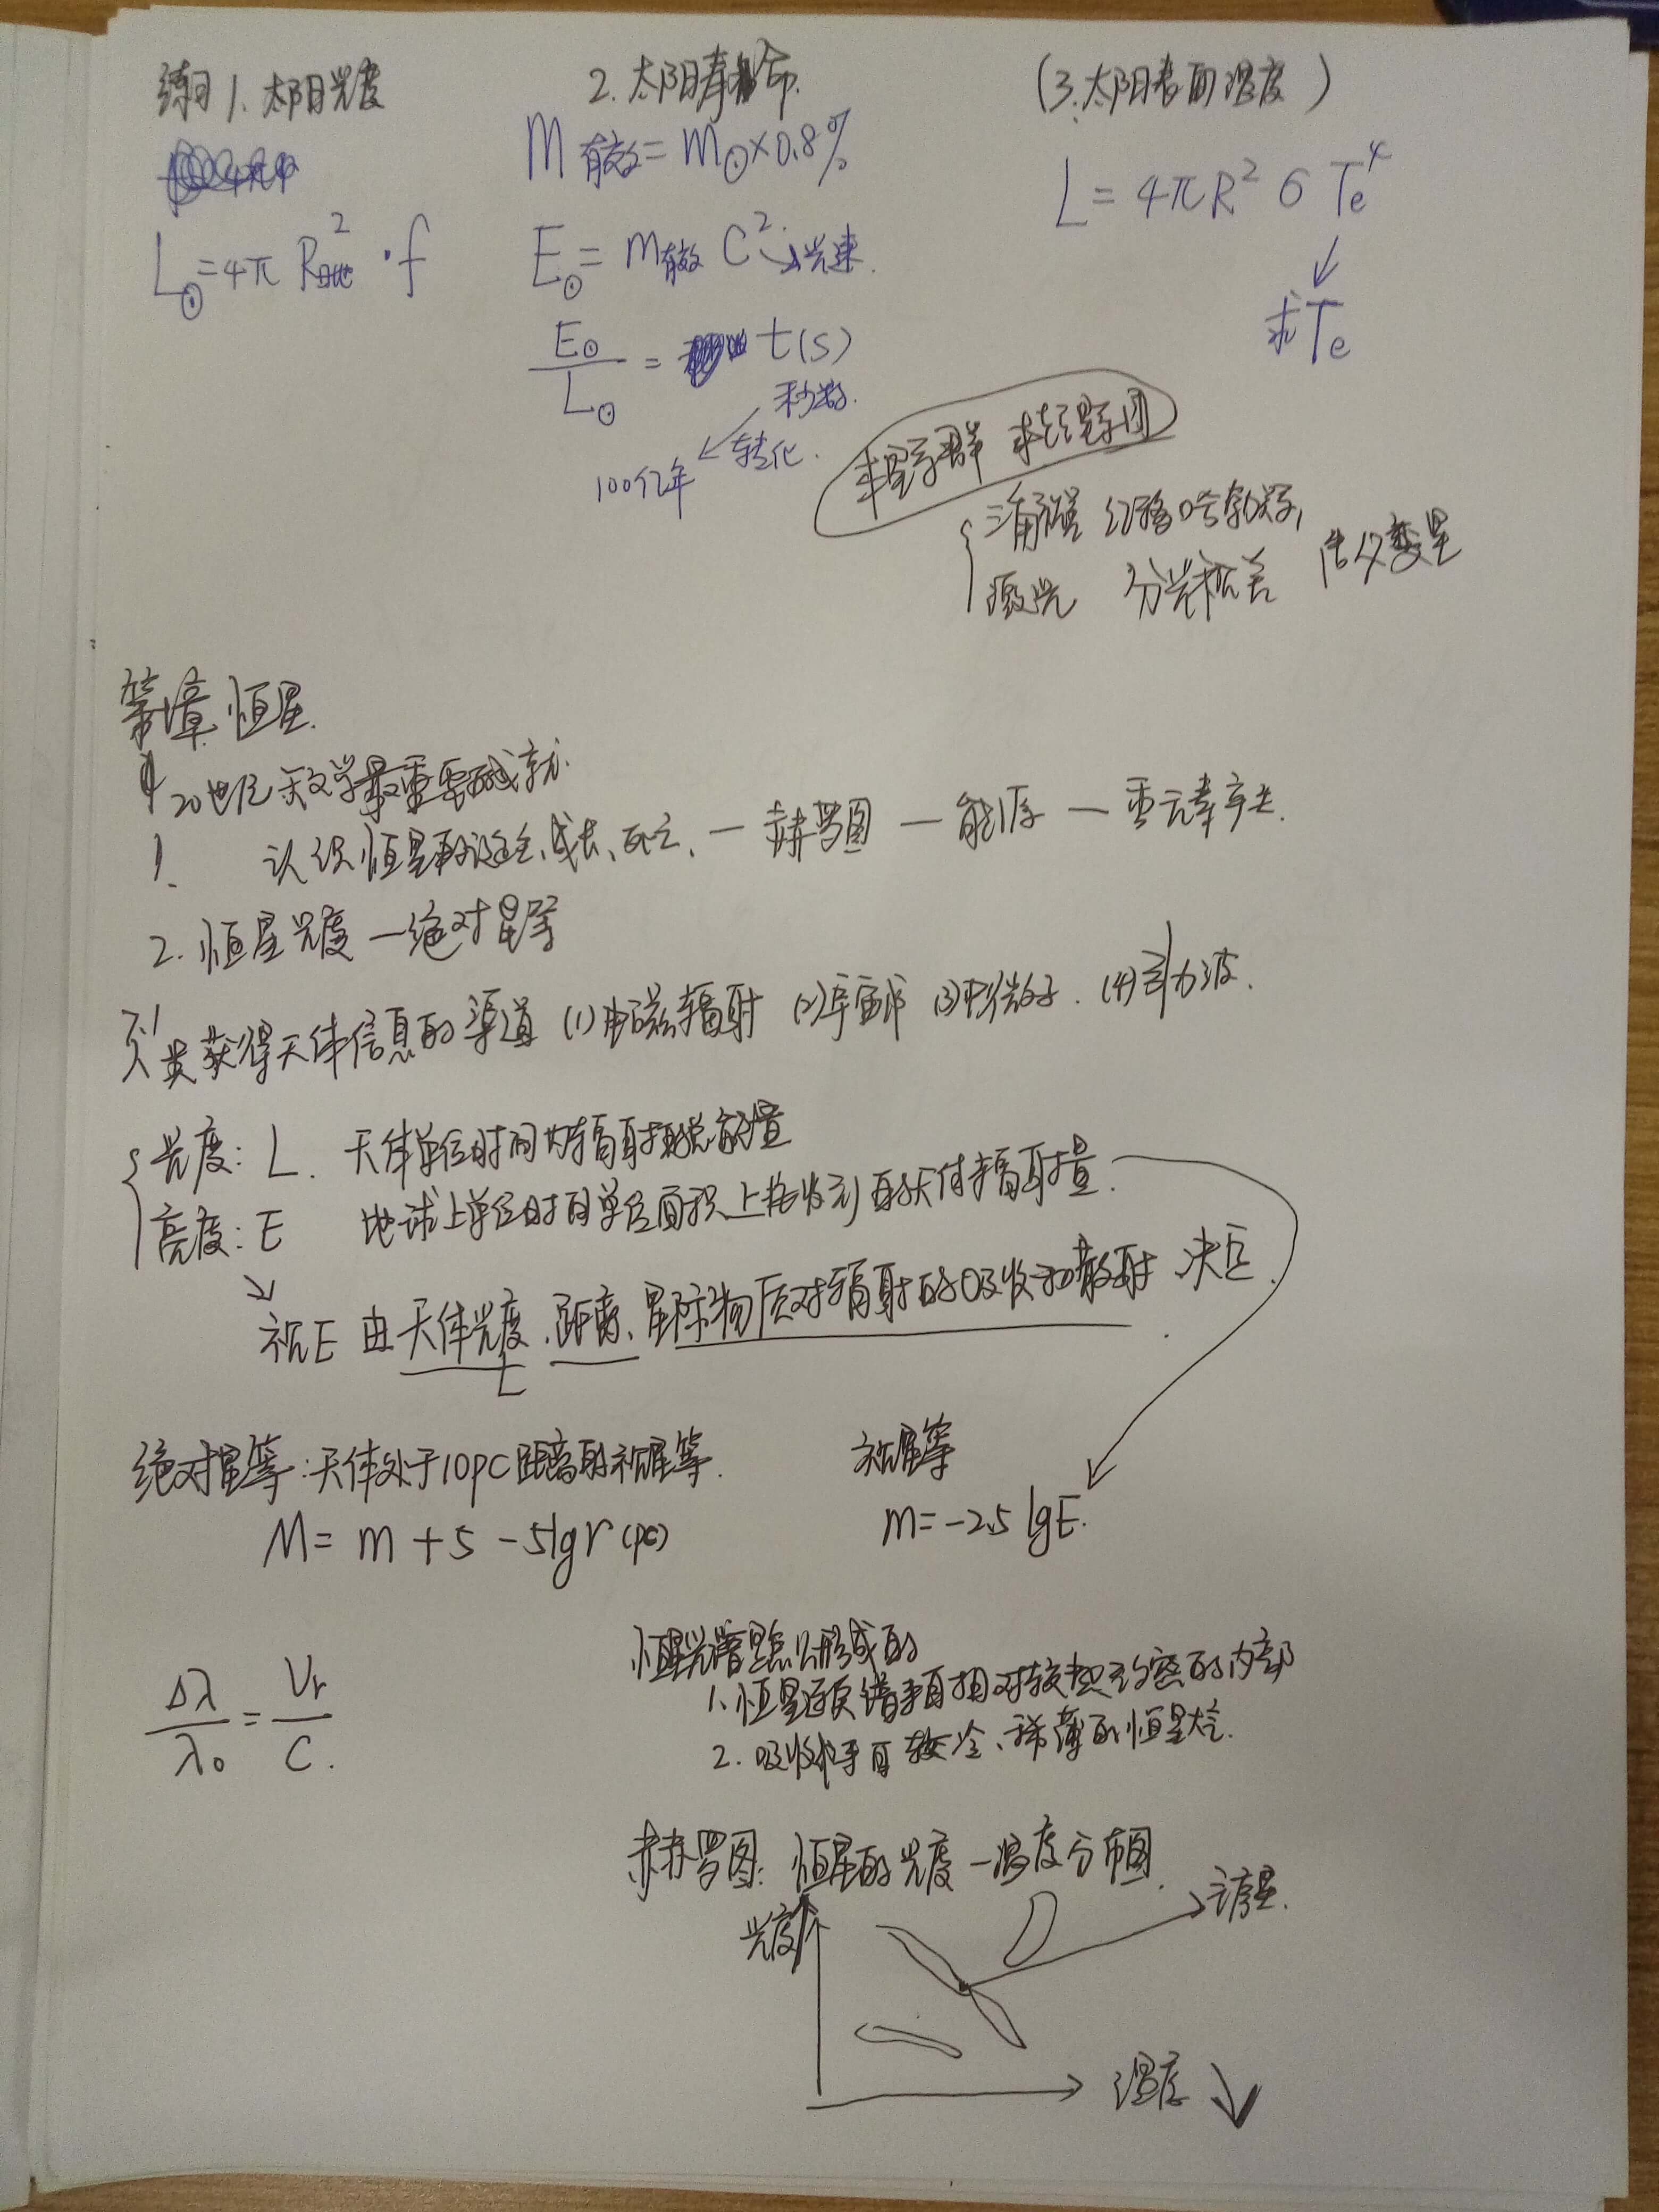 练习 1. 太阳光度
2. 太阳寿命.
(3. 太阳表面温度)
L⊙=4π R日地² · f
M有效 = M⊙×0.8%
E⊙ = m有效 C² → 光速.
E⊙/L⊙ = t(s)
秒数.
转化.
100亿年
L = 4πR² σ Te⁴
求Te
球星系群 本超星系团
三角视差 红移 哈勃
分光视差 造父变星
第 章 恒星.
20世纪天文学最重要的成就.
1. 认识恒星的诞生、成长、死亡. — 赫罗图 — 能源 — 重元素
2. 恒星光度 — 绝对星等
人类获得天体信息的渠道 (1)电磁辐射 (2)宇宙 (3)中微子. (4)引力波.
光度: L. 天体单位时间内辐射的总能量
亮度: E 地球上单位时间单位面积上接收到的天体辐射量.
视E 由天体光度、距离、星际物质对辐射的吸收和散射 决定.
L
绝对星等: 天体处于10pc距离的视星等.
视星等
M = m + 5 - 5lg r (pc)
m = -2.5 lgE.
Δλ/λ₀ = Vr/C.
恒星光谱是怎么形成的
1. 恒星连续谱来自相对较热、致密的内部
2. 吸收 来自较冷、稀薄的恒星大气.
赫罗图: 恒星的光度 — 温度分布图.
光度
主序星.
温度